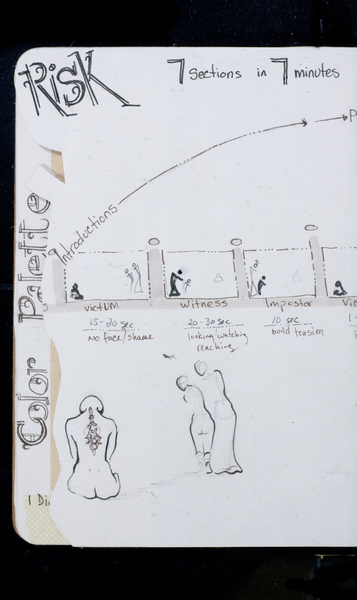 RISK
7 Sections in 7 minutes
P
Introductions
Color Palette
VICTUM
Witness
Impostor
Vic
15-20 sec
no face/shame
20-30 sec
looking watching
reaching
10 sec
build tension
1 Di